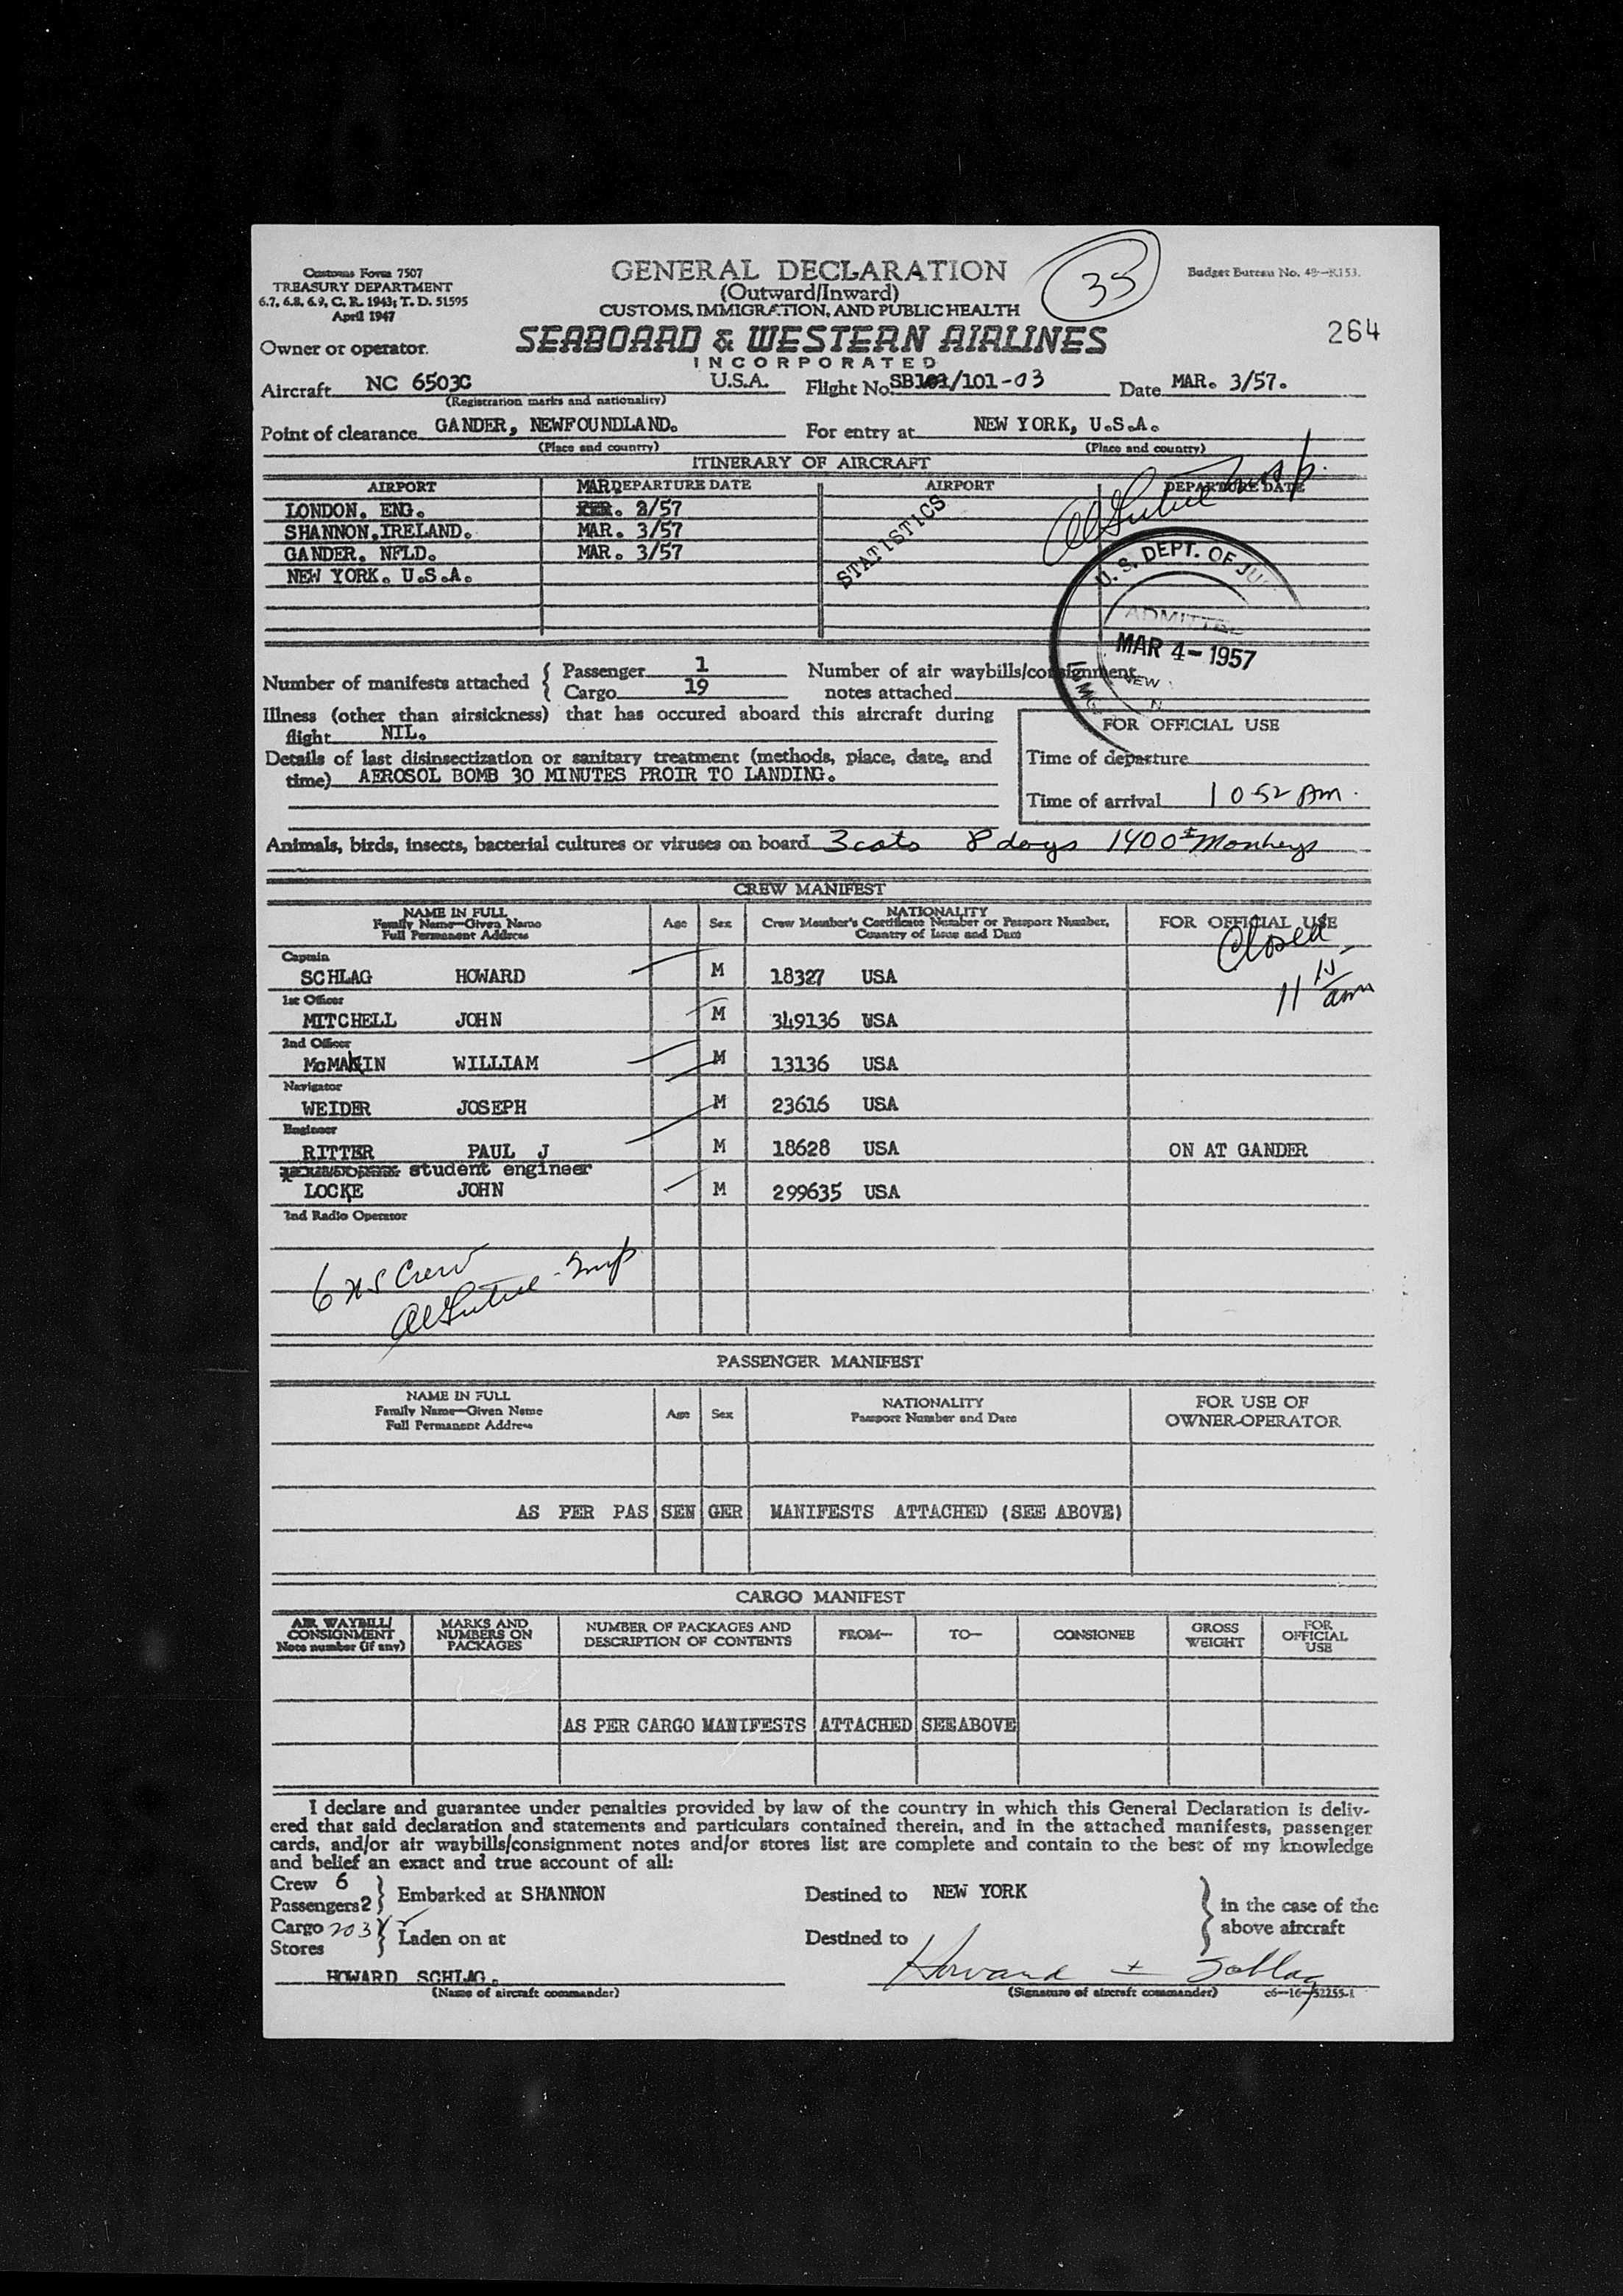 Customs Form 7507
TREASURY DEPARTMENT
6.7, 6.8, 6.9, C. R. 1943; T. D. 51595
April 1947
GENERAL DECLARATION
(Outward/Inward)
CUSTOMS, IMMIGRATION, AND PUBLIC HEALTH
35
Budget Bureau No. 48-R153.
264
Owner or operator.
SEABOARD & WESTERN AIRLINES
INCORPORATED
Aircraft NC 6503C U.S.A. Flight No. SB101/101-03 Date MAR. 3/57.
(Registration marks and nationality)
Point of clearance GANDER, NEWFOUNDLAND. For entry at NEW YORK, U.S.A.
(Place and country) (Place and country)
ITINERARY OF AIRCRAFT
AIRPORT MAR DEPARTURE DATE AIRPORT DEPARTURE DATE
LONDON. ENG. . 2/57
SHANNON,IRELAND. MAR. 3/57
GANDER. NFLD. MAR. 3/57
NEW YORK. U.S.A.
STATISTICS
U. S. DEPT. OF JU
ADMITTED
MAR 4- 1957
NEW
Number of manifests attached { Passenger 1
Cargo 19
Number of air waybills/consignment
notes attached
Illness (other than airsickness) that has occured aboard this aircraft during
flight NIL.
Details of last disinsectization or sanitary treatment (methods, place, date, and
time) AEROSOL BOMB 30 MINUTES PROIR TO LANDING.
FOR OFFICIAL USE
Time of departure
Time of arrival 10 52 Am.
Animals, birds, insects, bacterial cultures or viruses on board 3 cats 8 dogs 1400± Monkeys
CREW MANIFEST
NAME IN FULL
Family Name—Given Name
Full Permanent Address
Age Sex
NATIONALITY
Crew Member's Certificate Number or Passport Number,
Country of Issue and Date
FOR OFFICIAL USE
Closed
11 15 am
Captain
SCHLAG HOWARD M 18327 USA
1st Officer
MITCHELL JOHN M 349136 USA
2nd Officer
McMAKIN WILLIAM M 13136 USA
Navigator
WEIDER JOSEPH M 23616 USA
Engineer
RITTER PAUL J M 18628 USA ON AT GANDER
student engineer
LOCKE JOHN M 299635 USA
2nd Radio Operator
6 Crew
PASSENGER MANIFEST
NAME IN FULL
Family Name—Given Name
Full Permanent Address
Age Sex
NATIONALITY
Passport Number and Date
FOR USE OF
OWNER-OPERATOR
AS PER PASSENGER MANIFESTS ATTACHED (SEE ABOVE)
CARGO MANIFEST
AIR WAYBILL/
CONSIGNMENT
Note number (if any)
MARKS AND
NUMBERS ON
PACKAGES
NUMBER OF PACKAGES AND
DESCRIPTION OF CONTENTS
FROM— TO— CONSIGNEE
GROSS
WEIGHT
FOR
OFFICIAL
USE
AS PER CARGO MANIFESTS ATTACHED SEE ABOVE
I declare and guarantee under penalties provided by law of the country in which this General Declaration is deliv-
ered that said declaration and statements and particulars contained therein, and in the attached manifests, passenger
cards, and/or air waybills/consignment notes and/or stores list are complete and contain to the best of my knowledge
and belief an exact and true account of all:
Crew 6
Passengers 2 } Embarked at SHANNON Destined to NEW YORK
Cargo 203
Stores } Laden on at Destined to
} in the case of the
above aircraft
HOWARD SCHLAG.
(Name of aircraft commander)
Howard Schlag
(Signature of aircraft commander) c6—16—52255-1